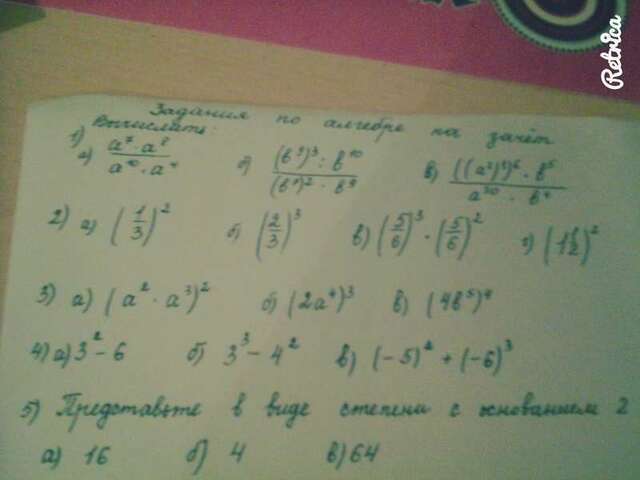 Retrica
Задания по алгебре на зачёт
Вычислить:
1) а) (a⁷ · a⁸)/(a¹⁰ · a⁴) б) ((b⁹)³ : b¹⁰)/((b⁹)² · b⁹) в) (((a²)⁹)⁶ · b⁵)/(a³⁰ · b⁴)
2) а) (1/3)² б) (2/3)³ в) (5/6)³ · (5/6)² г) (1 1/2)²
3) а) (a² · a³)² б) (2a⁴)³ в) (4b⁵)⁴
4) а) 3² - 6 б) 3³ - 4² в) (-5)² + (-6)³
5) Представьте в виде степени с основанием 2
а) 16 б) 4 в) 64